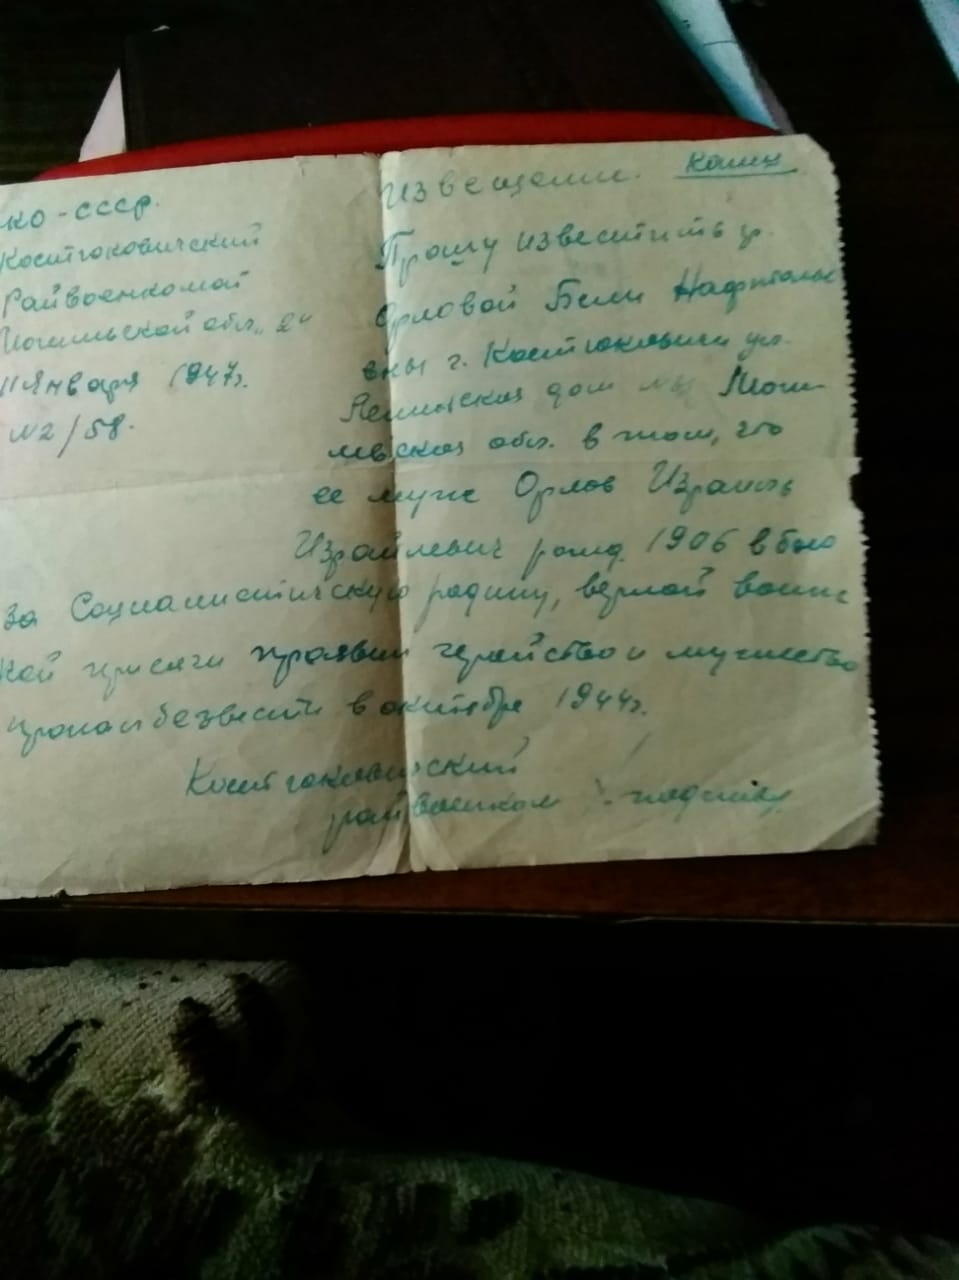 Копия
Извещении.
ко-СССР.
Костюковичский
Райвоенкомат
Могильской обл. „2"
11 Января 1947г.
№2/58.
Прошу известить гр.
Орловой Бели Нафтоль
евны г. Костюковичи ул.
Ленинская дом Моги-
левская обл. в том, что
ее муж Орлов Израиль
Израйлевич рожд. 1906 в бою
за Социалистическую родину, верной воинс
кой присяги проявив геройство и мужество
пропал безвести в октябре 1944г.
Костюковичский
райвоенком подпись